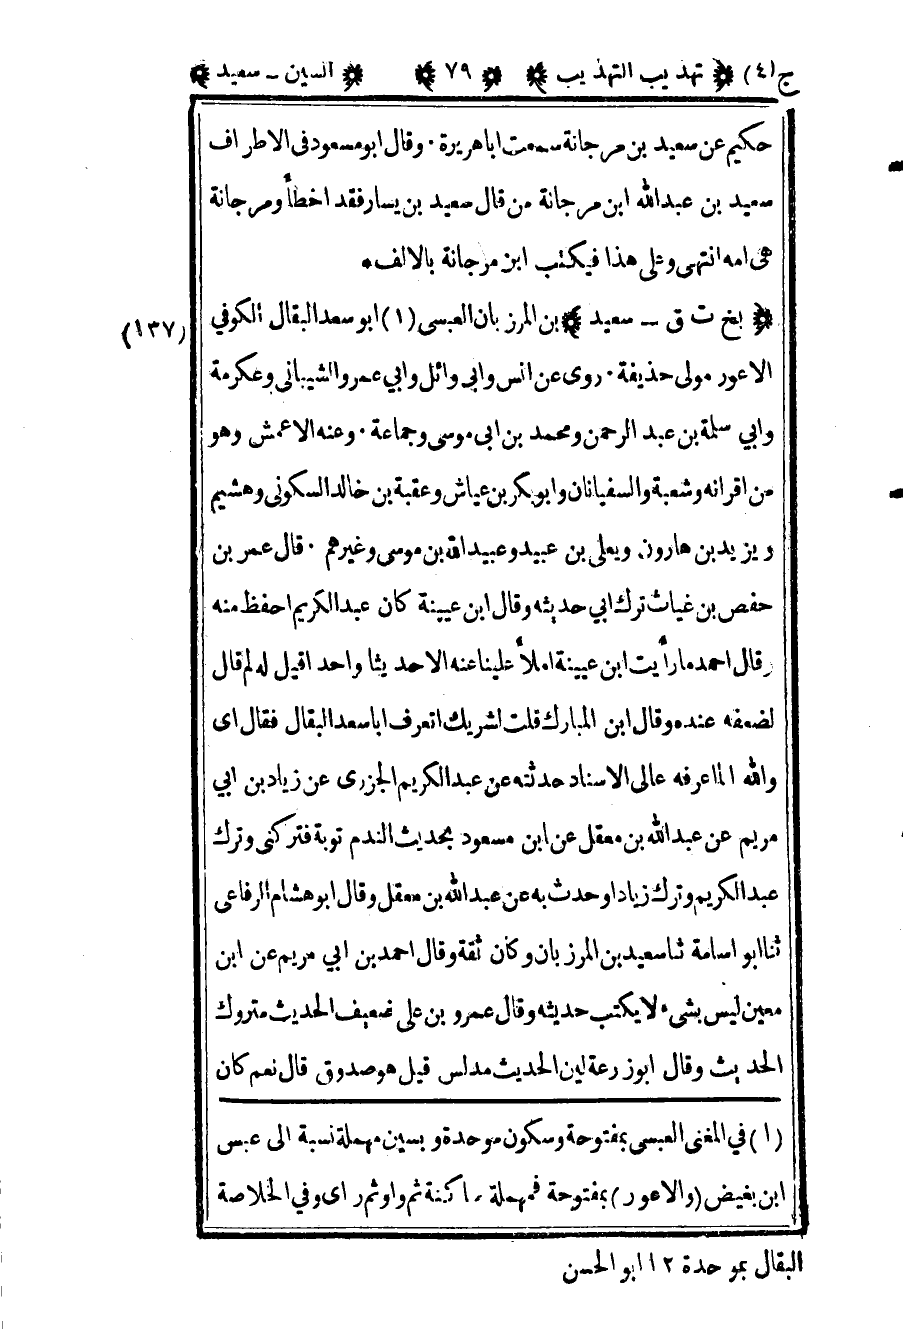 ج(٤) ﴿ تهذيب التهذيب ﴾ ﴿ ٧٩ ﴾ ﴿ السين ــ سعيد ﴾
حكيم عن سعيد بن مرجانة سمعت اباهريرة ٠ وقال ابو مسعود فى الاطراف
سعيد بن عبدالله ابن مرجانة من قال سعيد بن يسار فقد اخطأ ومرجانة
هى امه انتهى وعلى هذا فيكتب ابن مرجانة بالالف ٭
﴿ بخ ت ق ــ سعيد ﴾ بن المرزبان العبسى (١) ابو سعد البقال الكوفي (١٣٧)
الاعور مولى حذيفة ٠ روى عن انس وابى وائل وابي عمرو الشيبانى وعكرمة
وابي سلمة بن عبد الرحمن ومحمد بن ابى موسى وجماعة ٠ وعنه الاعمش وهو
من اقرانه وشعبة والسفيانان وابوبكر بن عياش وعقبة بن خالد السكونى وهشيم
ويزيد بن هارون ويعلى بن عبيد وعبيد الله بن موسى وغيرهم ٠ قال عمر بن
حفص بن غياث ترك ابي حديثه وقال ابن عيينة كان عبدالكريم احفظ منه
وقال احمد ما رأيت ابن عيينة املأ علينا عنه الا حديثا واحدا قيل له لم قال
لضعفه عنده وقال ابن المبارك قلت لشريك اتعرف اباسعد البقال فقال اى
والله انا اعرفه عالى الاسناد حدثته عن عبدالكريم الجزرى عن زياد بن ابي
مريم عن عبدالله بن معقل عن ابن مسعود بحديث الندم توبة فتركنى وترك
عبدالكريم وترك زيادا وحدث به عن عبدالله بن معقل وقال ابو هشام الرفاعى
ثنا ابو اسامة ثنا سعيد بن المرزبان وكان ثقة وقال احمد بن ابي مريم عن ابن
معين ليس بشىء لا يكتب حديثه وقال عمرو بن على ضعيف الحديث متروك
الحديث وقال ابوزرعة لين الحديث مدلس قيل هو صدوق قال نعم كان
(١) في المغنى العبسى بمفتوحة وسكون موحدة وبسين مهملة نسبة الى عبس
ابن بغيض (والاعور) بمفتوحة فمهملة ساكنة ثم واو ثم راى وفي الخلاصة
البقال بموحدة ١٢ ابو الحسن